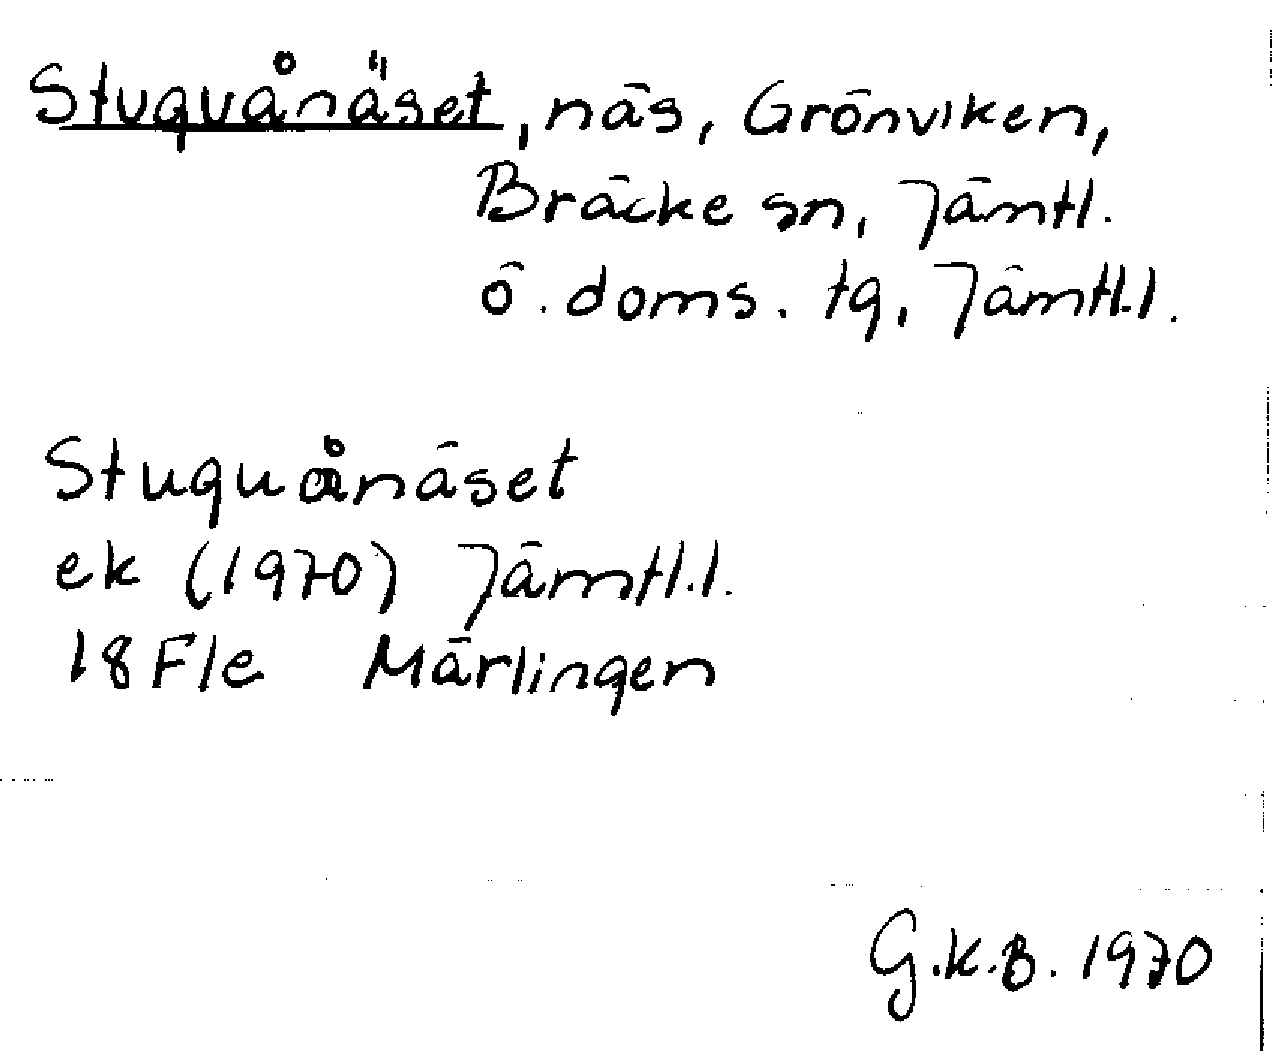 Stugvånäset, näs, Grönviken,
Bräcke sn, Jämtl.
ö. doms. tg, Jämtl.l.
Stuguånäset
ek (1970) Jämtl.l.
18F1e Märlingen
G.K.B. 1970